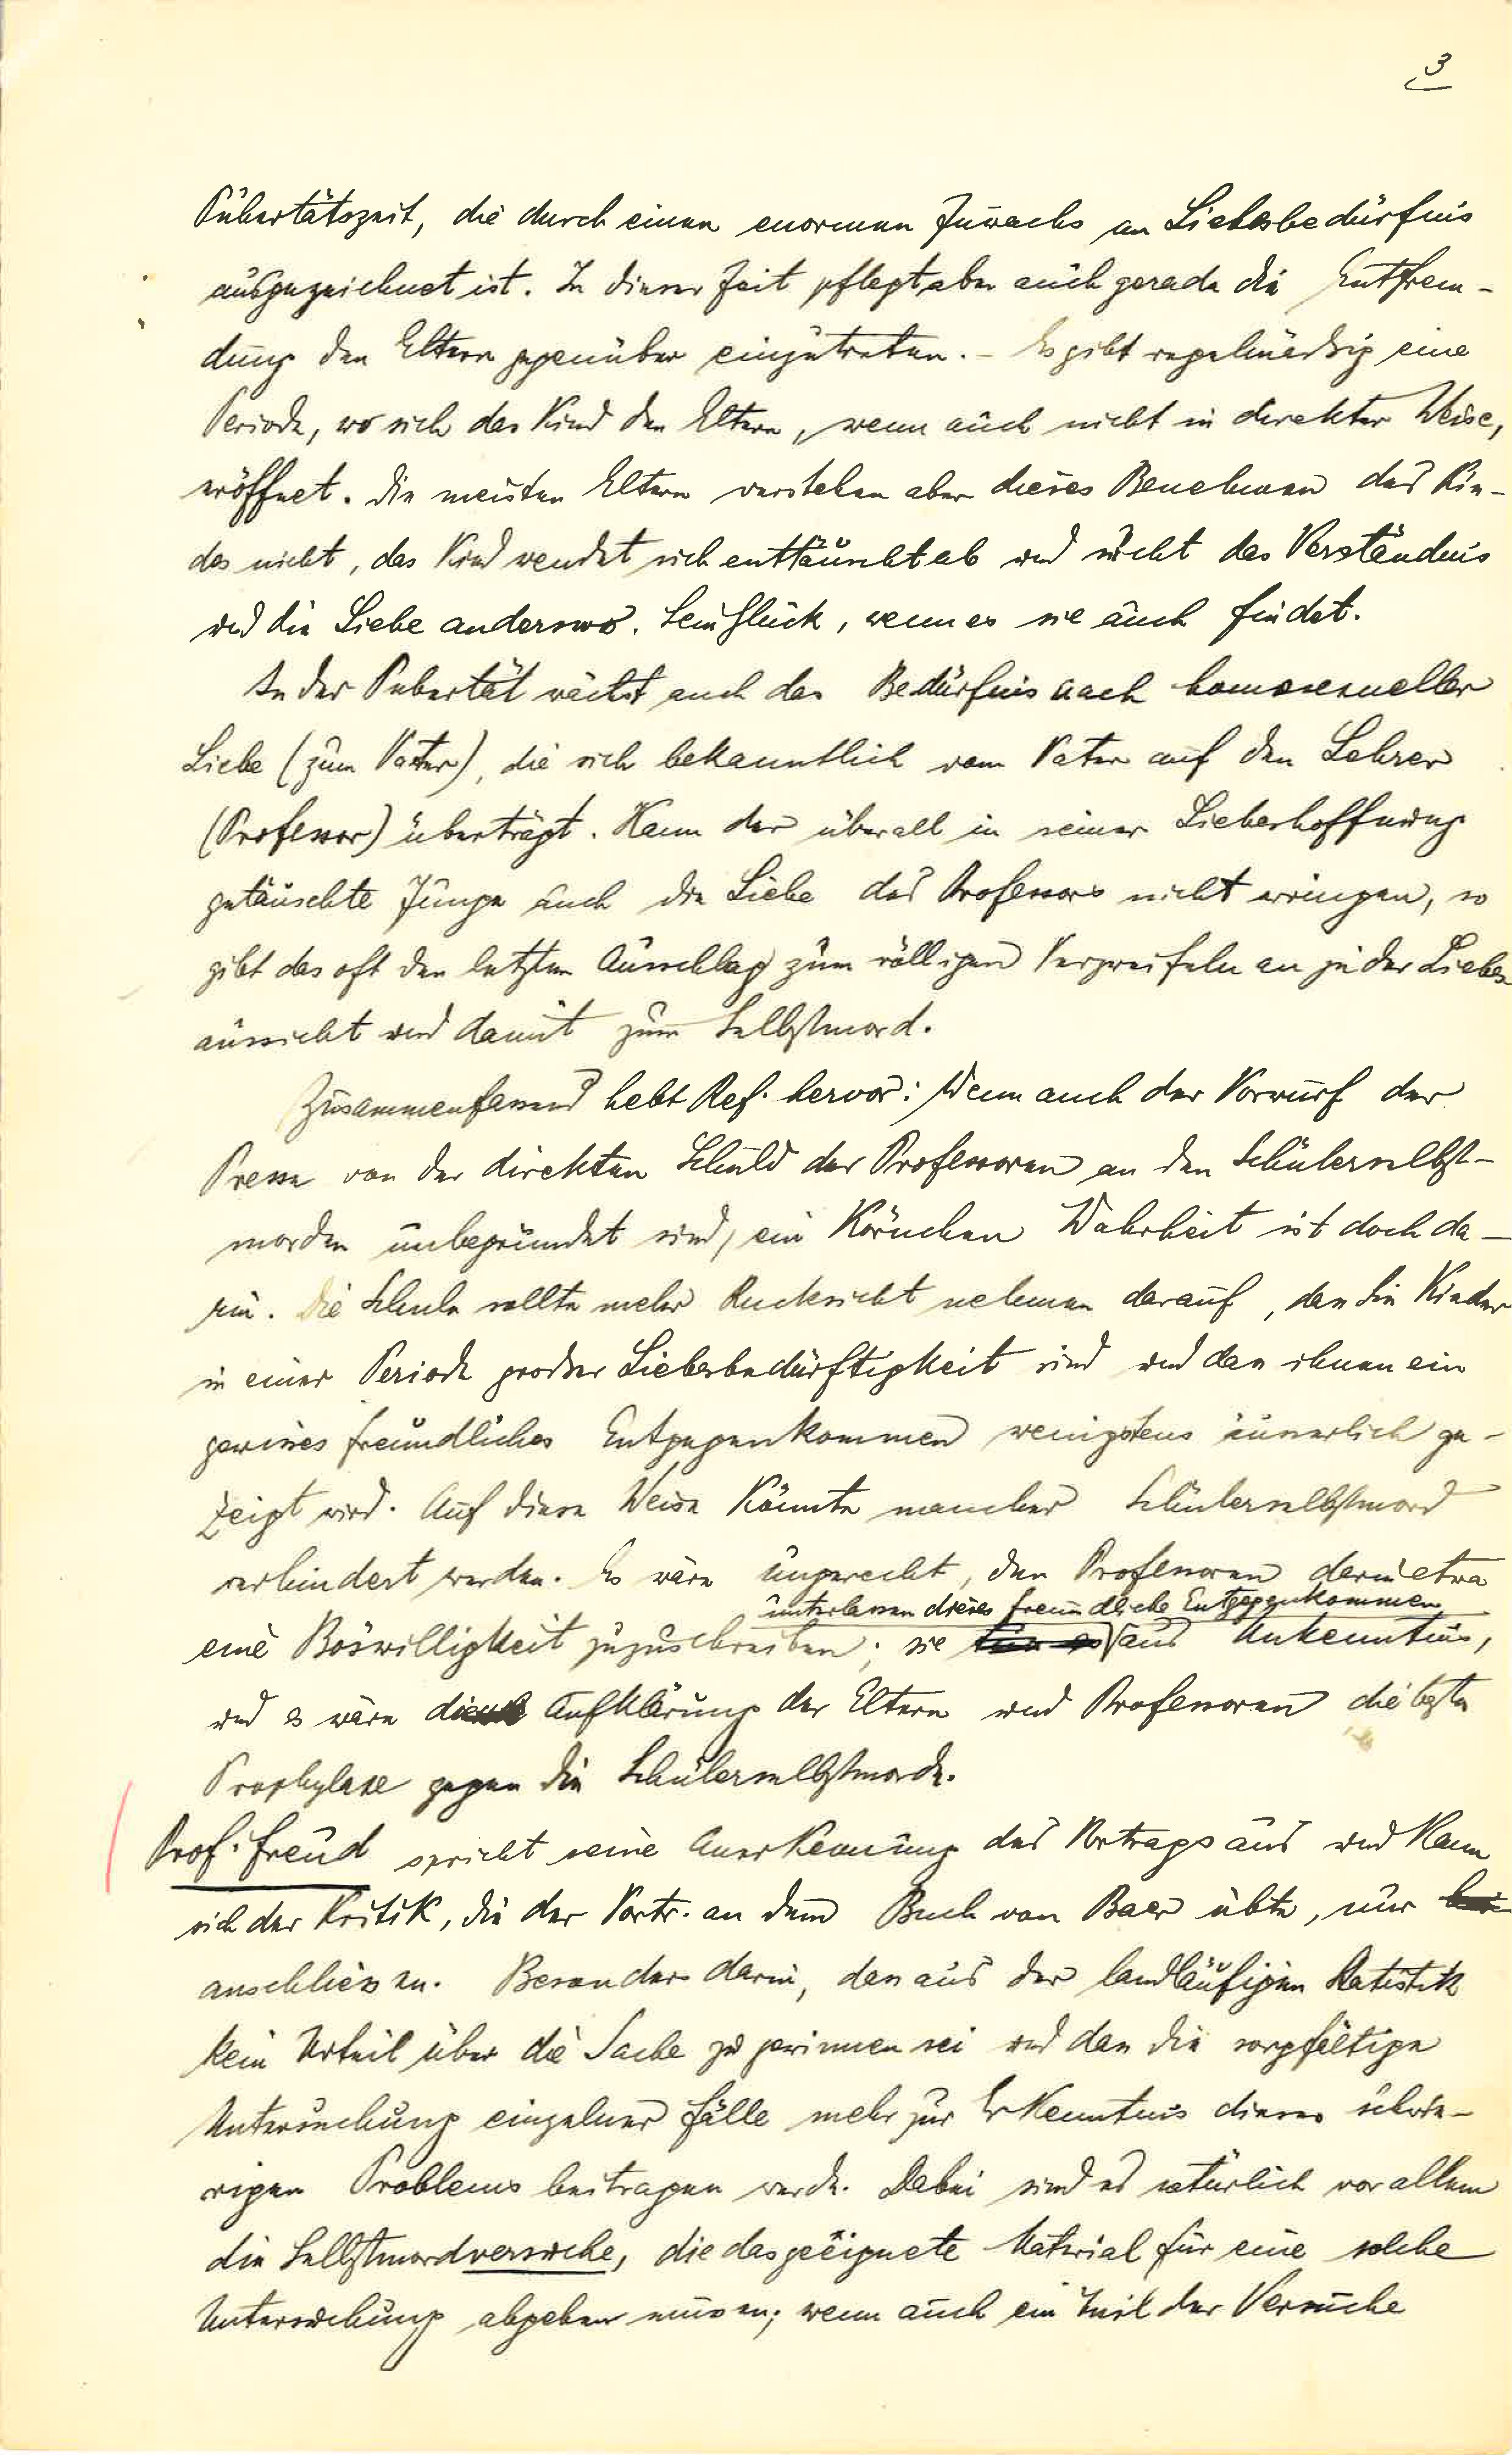 3
Pubertätszeit, die durch einen enormen Zuwachs an Liebesbedürfnis
ausgezeichnet ist. In dieser Zeit pflegt aber auch gerade die Entfrem-
dung den Eltern gegenüber einzutreten. – Es gibt regelmässig eine
Periode, wo sich das Kind den Eltern, wenn auch nicht in direkter Weise,
eröffnet. Die meisten Eltern verstehen aber dieses Benehmen des Kin-
des nicht, das Kind wendet sich enttäuscht ab und sucht das Verständnis
und die Liebe anderswo. Sein Glück, wenn es sie auch findet.
In der Pubertät wächst auch das Bedürfnis nach homosexueller
Liebe (zum Vater), die sich bekanntlich vom Vater auf den Lehrer
(Professor) überträgt. Kann der überall in seiner Liebeshoffnung
getäuschte Junge auch die Liebe des Professors nicht erringen, so
gibt das oft den letzten Ausschlag zum völligen Verzweifeln an jeder Liebes-
aussicht und damit zum Selbstmord.
Zusammenfassend hebt Ref. hervor: Wenn auch der Vorwurf der
Presse von der direkten Schuld der Professoren an den Schülerselbst-
morden unbegründet sind, ein Körnchen Wahrheit ist doch da-
rin. Die Schule sollte mehr Rücksicht nehmen darauf, dass die Kinder
in einer Periode grosser Liebesbedürftigkeit sind und dass ihnen ein
gewisses freundliches Entgegenkommen wenigstens äusserlich ge-
zeigt wird. Auf diese Weise könnte mancher Schülerselbstmord
verhindert werden. Es wäre ungerecht, den Professoren darin etwa
unterlassen dieses freundliche Entgegenkommen
eine Böswilligkeit zuzuschreiben; sie aus Unkenntnis,
und es wäre die Aufklärung der Eltern und Professoren die beste
Prophylaxe gegen die Schülerselbstmorde.
Prof. Freud spricht seine Anerkennung des Vortrags aus und kann
sich der Kritik, die der Vortr. an dem Buch von Baer übte, nur
anschliessen. Besonders darin, dass aus der landläufigen Statistik
kein Urteil über die Sache zu gewinnen sei und dass die sorgfältige
Untersuchung einzelner Fälle mehr zur Erkenntnis dieses schwie-
rigen Problems beitragen werde. Dabei sind es natürlich vor allem
die Selbstmordversuche, die das geeignete Material für eine solche
Untersuchung abgeben müssen; wenn auch ein Teil der Versuche